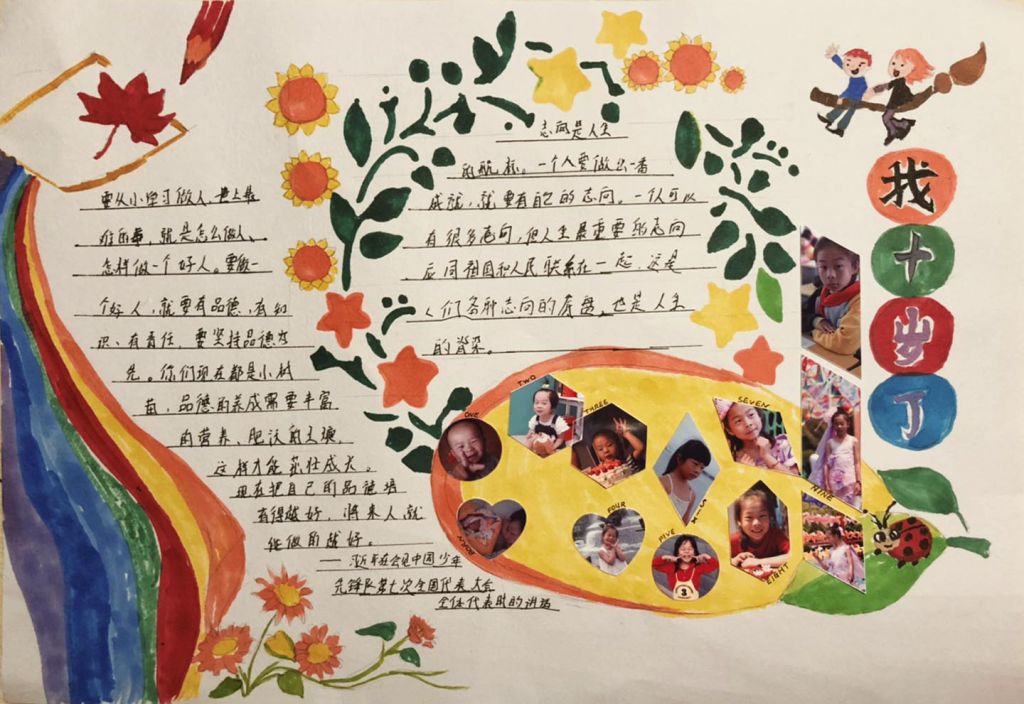 要从小学习做人,世上最
难的事,就是怎么做人、
怎样做一个好人。要做一
个好人,就要有品德、有知
识、有责任,要坚持品德为
先。你们现在都是小树
苗,品德的养成需要丰富
的营养、肥沃的土壤,
这样才能茁壮成长。
现在把自己的品德培
育得越好,将来人就
能做的越好。
——习近平在会见中国少年
先锋队第七次全国代表大会
全体代表时的讲话
志向是人生
的航标。一个人要做出一番
成就,就要有自己的志向。一个人可以
有很多志向,但人生最重要的志向
应同祖国和人民联系在一起,这是
人们各种志向的底盘,也是人生
的脊梁。
ONE
TWO
THREE
FOUR
FIVE
SIX
SEVEN
EIGHT
NINE
BORN
3
我
十
岁
了